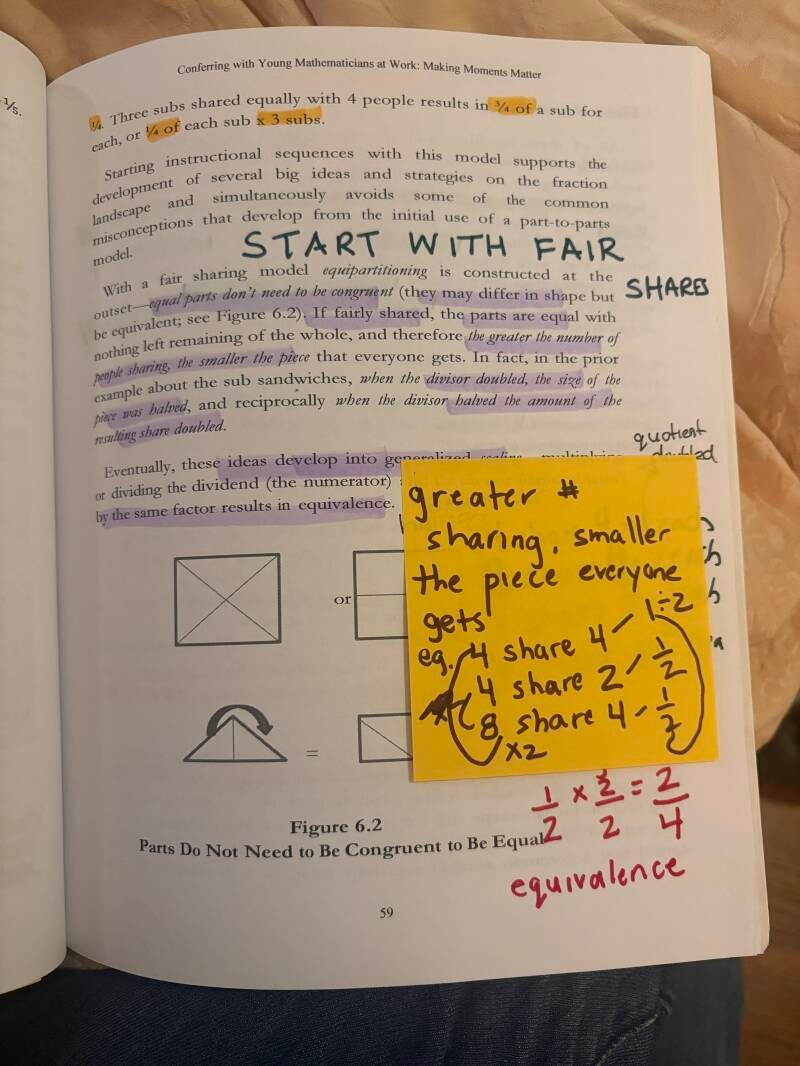 Conferring with Young Mathematicians at Work: Making Moments Matter
1/5.
¼. Three subs shared equally with 4 people results in ¾ of a sub for
each, or ¼ of each sub x 3 subs.
Starting instructional sequences with this model supports the
development of several big ideas and strategies on the fraction
landscape and simultaneously avoids some of the common
misconceptions that develop from the initial use of a part-to-parts
model.
START WITH FAIR
SHARES
With a fair sharing model equipartitioning is constructed at the
outset—equal parts don't need to be congruent (they may differ in shape but
be equivalent; see Figure 6.2). If fairly shared, the parts are equal with
nothing left remaining of the whole, and therefore the greater the number of
people sharing, the smaller the piece that everyone gets. In fact, in the prior
example about the sub sandwiches, when the divisor doubled, the size of the
piece was halved, and reciprocally when the divisor halved the amount of the
resulting share doubled.
quotient
doubled
Eventually, these ideas develop into generalized
or dividing the dividend (the numerator)
by the same factor results in equivalence.
greater #
sharing, smaller
the piece everyone
gets
eg. 4 share 4 / 1÷2
4 share 2 / 1/2
8 share 4 - 1/2
x2
or
=
1/2 x 2/2 = 2/4
equivalence
Figure 6.2
Parts Do Not Need to Be Congruent to Be Equal
59